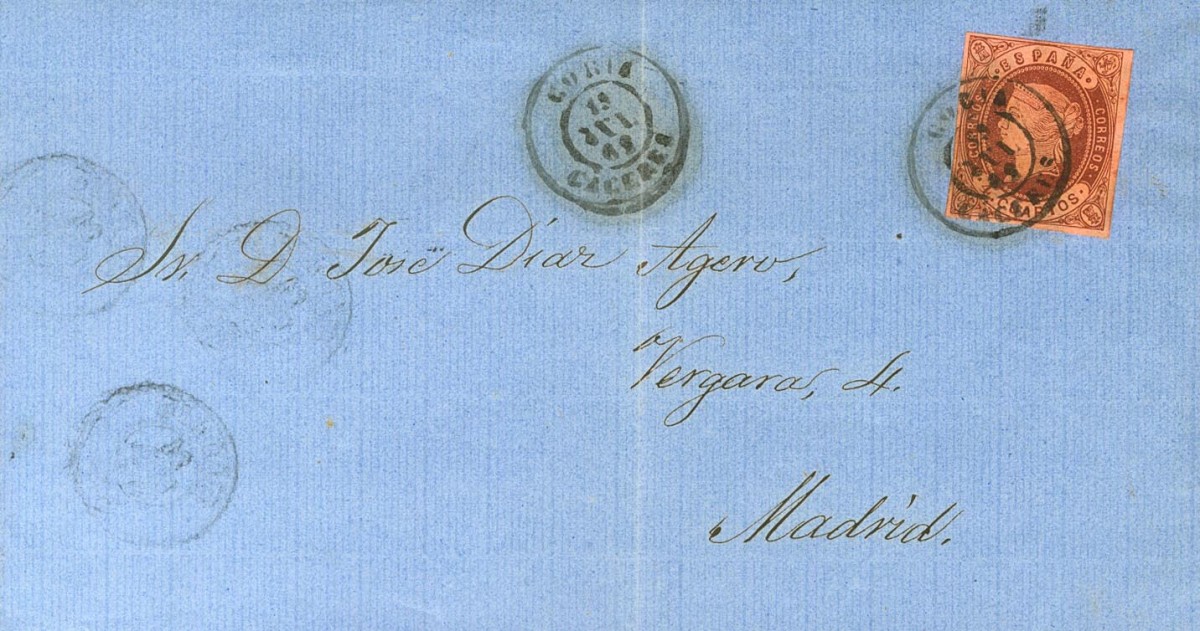 CORIA
JUL
CACERES
ESPAÑA
CORREOS
CORREOS
CUARTOS
Sr. D. José Díaz Agero,
Vergara, 4.
Madrid.